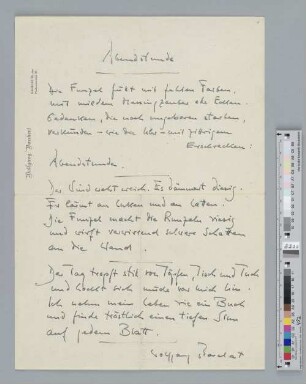 Abendstunde
Die Funzel füllt mit fahlen Farben,
mit mildem Messingzauber die Ecken.
Gedanken, die noch ungeboren starben,
verkünden – wie die Uhr – mit
Erschrecken:
Abendstunde.
Der Wind weht weich. Es dämmert diesig.
Er lehnt an Luken und an
Die Funzel macht die Runzeln riesig
und wirft verwirrend schwere Schatten
an die Wand.
Der Tag tropft still von Töpfen, Tisch und Tuch
und hockt sich müde vor mich hin.
Ich nehm mein Leben wie ein Buch
und finde tröstlich einen tiefen Sinn
auf jedem Blatt.
Wolfgang Borchert
Wolfgang Borchert